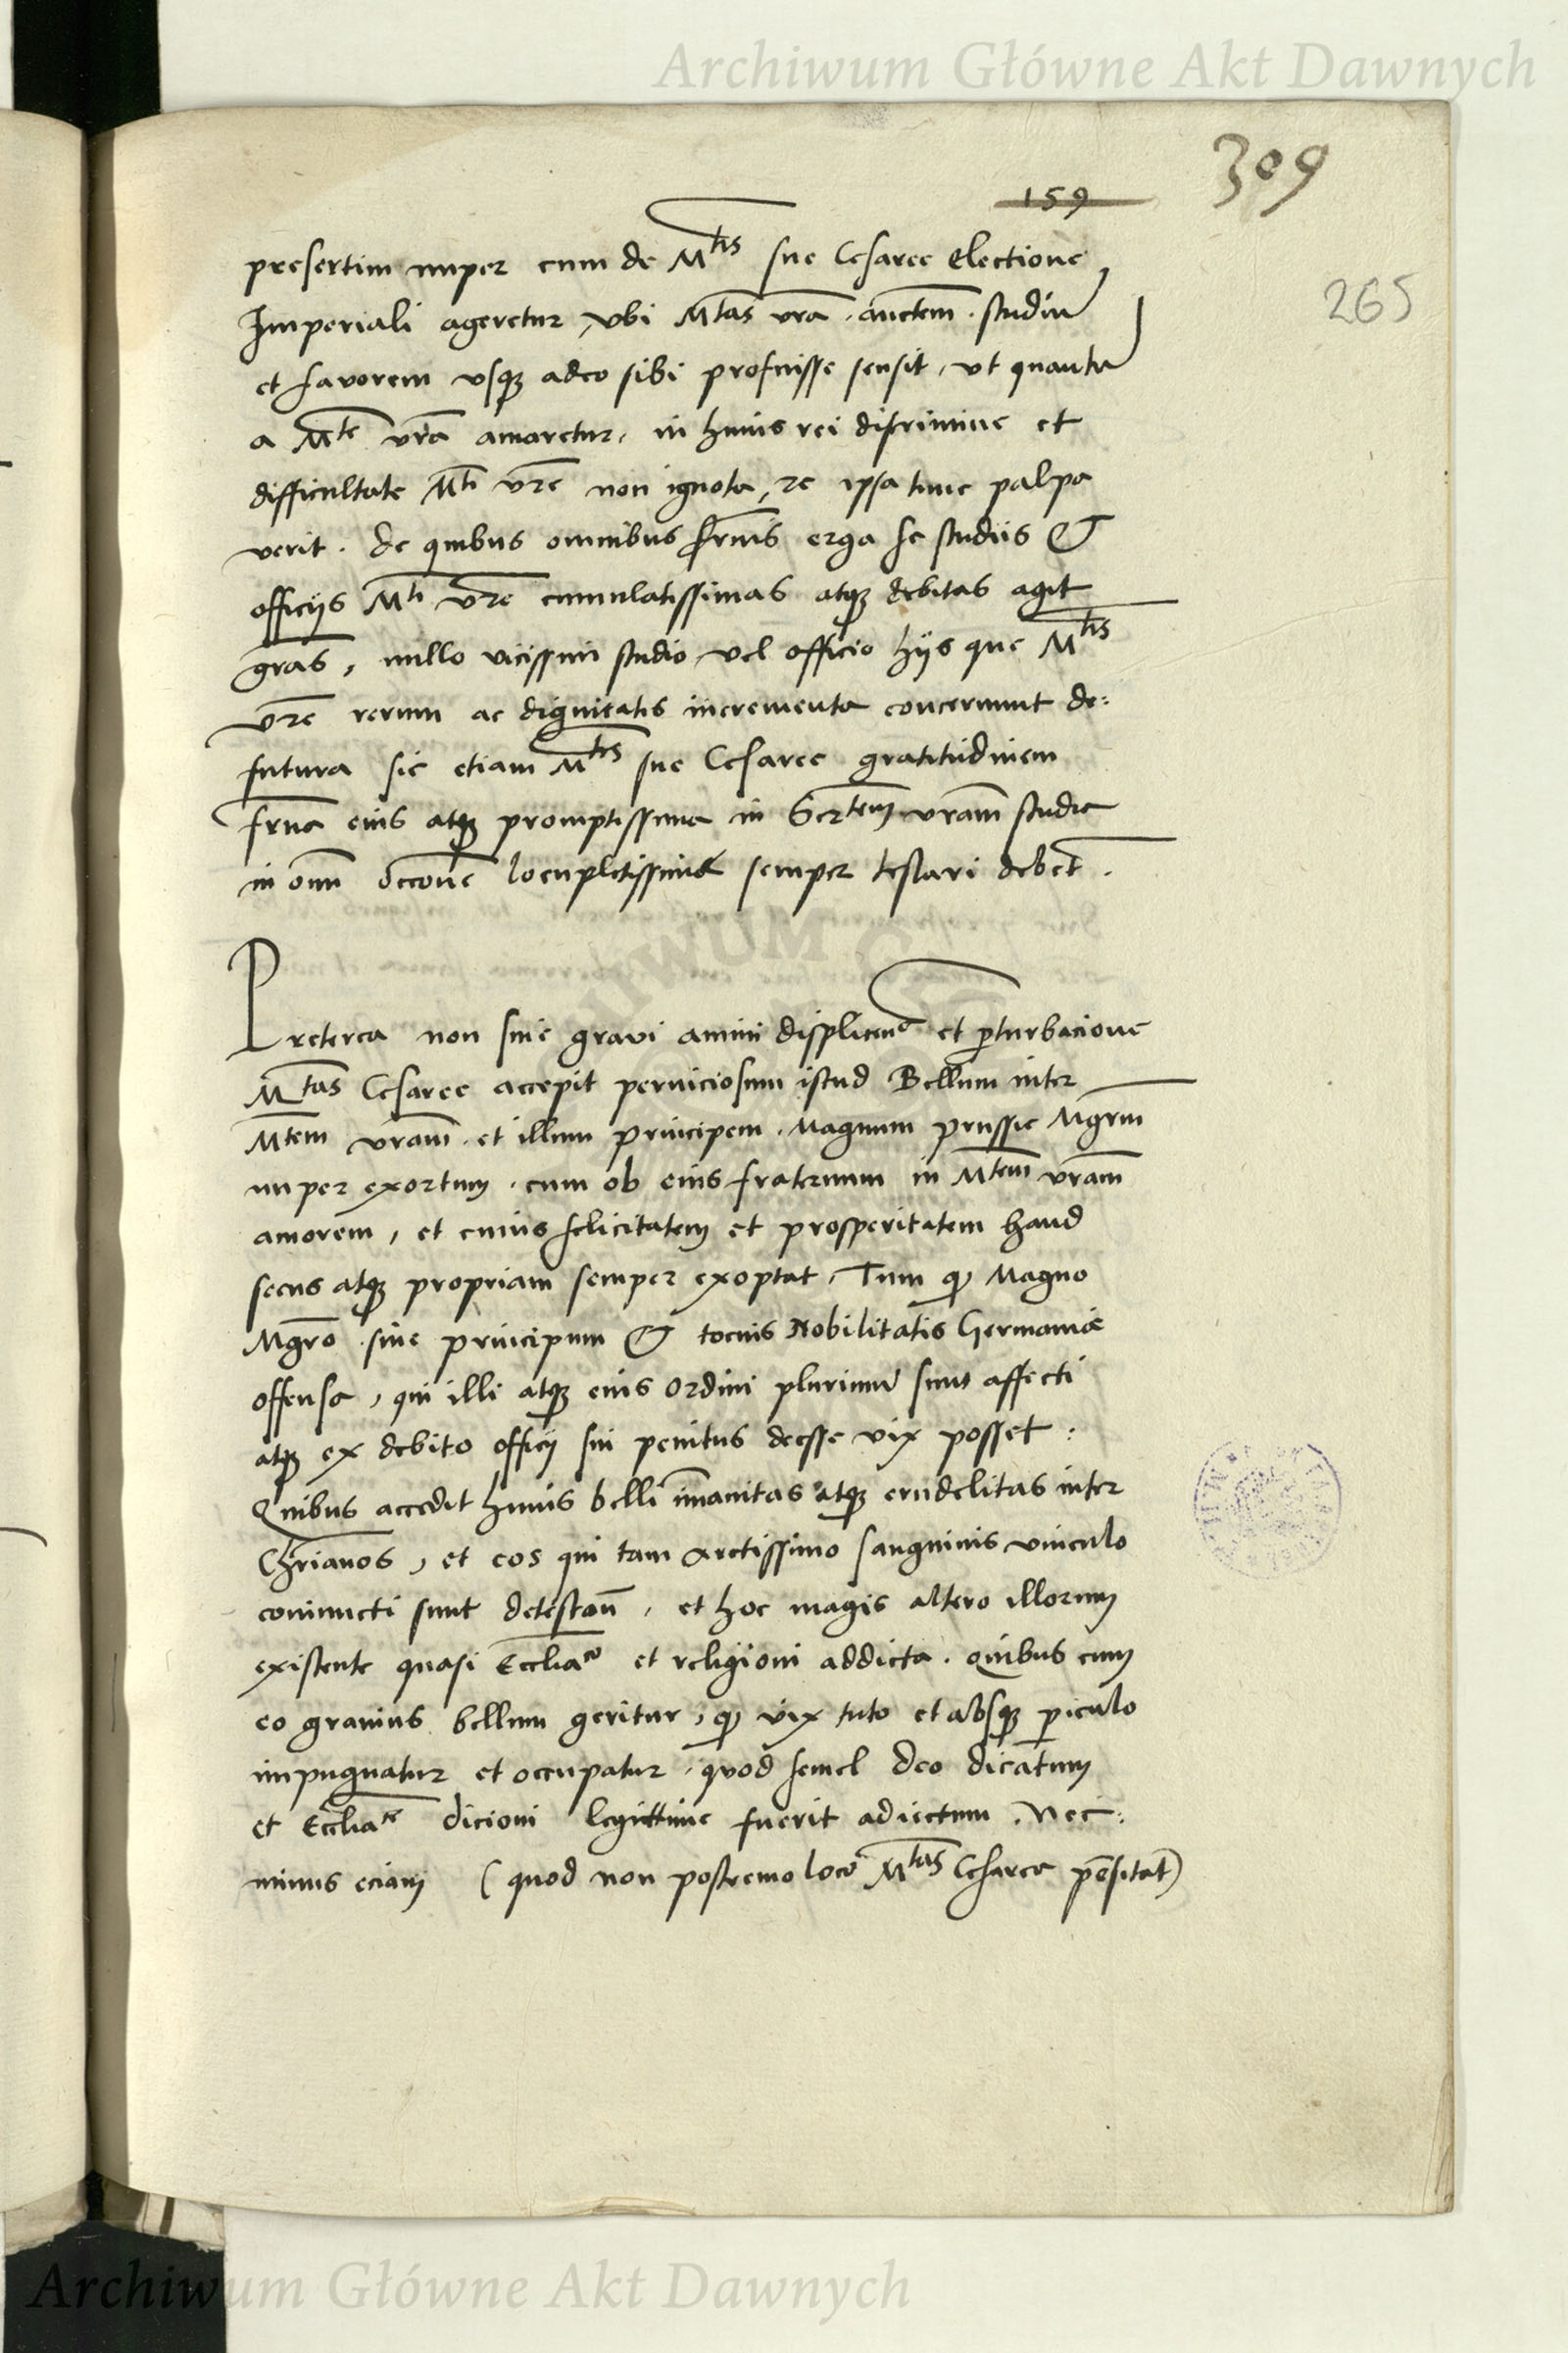 Archiwum Główne Akt Dawnych
309
159
265
presertim nuper cum de M^tis sue Cesaree Electione
Imperiali ageretur, vbi M^tas vra. auctem. studiu
et favorem vsq adeo sibi profuisse sensit, vt quantu
a M^te vra amaretur, in huius rei discrimine et
difficultate M^ti vre non ignota, re ipsa tunc palpa
verit. de quibus omnibus frnis erga se studiis &
officijs M^ti vre cumulatissimas atq debitas agit
gras, nullo vicissim studio vel officio hijs que M^tis
vre rerum ac dignitatis incrementa concernunt de:
futura sic etiam M^tis sue Cesaree gratitudinem
frna eius atq promptissima in Ser^tem vram studia
in omi occone locupletissime semper testari debet.
Preterea non sine gravi animi displicen^e et pturbacione
M^tas Cesaree accepit perniciosum istud Bellum inter
M^tem vram. et illum principem. Magnum prussie Mgrm
nuper exortum. cum ob eius fraternum in M^tem vram
amorem, et cuius felicitatem et prosperitatem haud
secus atq propriam semper exoptat, Tum q Magno
Mgro sine principum & tocius Nobilitatis Germaniae
offensa, qui illi atq eius ordini plurimu sunt affecti
atq ex debito officij sui penitus deesse vix posset:
Quibus accedit huius belli imanitas atq crudelitas inter
Chrianos, et eos qui tam arctissimo sanguinis vinculo
coniuncti sunt detestan, et hoc magis altero illorum
existente quasi Ecclia^co et religioni addicta. quibus cum
eo gravius bellum geritur, q vix tuto et absq piculo
impugnatur et occupatur, quod semel deo dicatum
et Ecclia^ce dicioni legittime fuerit adiectum. Nec:
minus eciam (quod non postremo loco M^tas Cesarea pensitat)
Archiwum Główne Akt Dawnych